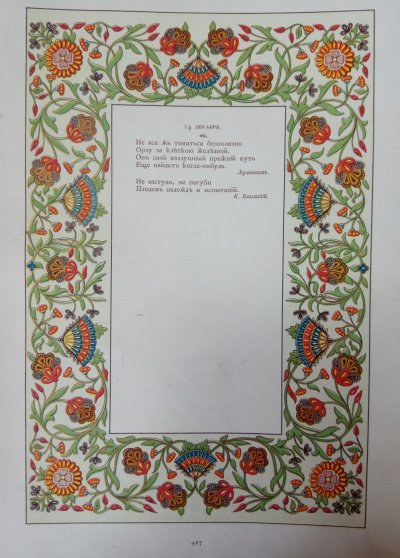 14 ДЕКАБРЯ.
Не все жъ томиться безполезно
Орлу за клѣткою желѣзной.
Онъ свой воздушный прежній путь
Еще найдетъ когда-нибудь.
Лермонтовъ.
Не застуди, не погуби
Плодовъ надеждъ и испытаній.
К. Вяземскій.
427